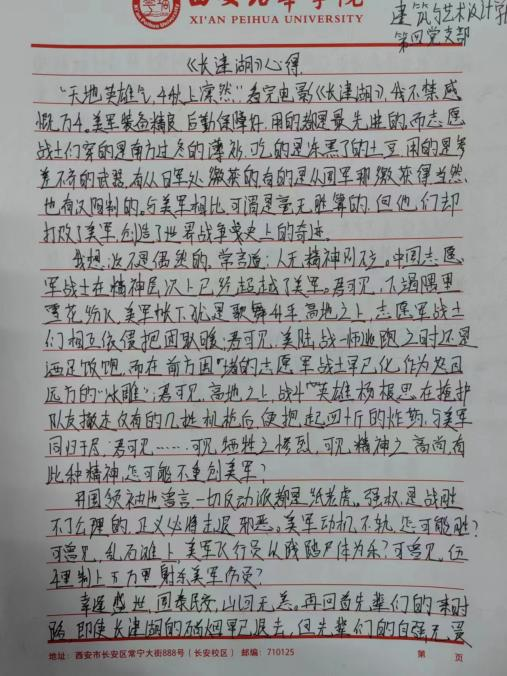 西安培华学院
XI'AN PEIHUA UNIVERSITY
建筑与艺术设计学
第四党支部
《长津湖》心得
"天地英雄气,千秋尚凛然"看完电影《长津湖》,我不禁感
慨万千。美军装备精良后勤保障好,用的都是最先进的,而志愿
战士们穿的是南方过冬的薄衫,吃的是冻黑了的土豆用的是参
差不齐的武器,有从日军处缴获的,有的是从国军那缴获得当然
也有汉阳制的。与美军相比,可谓是毫无胜算的,但他们却
打败了美军,创造了世界战争史上的奇迹。
我想,这不是偶然的,常言道:人无精神则不立。中国志愿
军战士在精神层次上已经超越了美军。君可见,不过隅里
雪花纷飞,美军帐下,犹是歌舞升平高地之上,志愿军战士
们相互依偎抱团取暖;君可见,美陆战一师逃跑之时还是
酒足饭饱,而在前方围堵的志愿军战士早已化作为
远方的"冰雕";君可见,高地之上,战斗英雄杨根思在掩护
队友撤走仅有的几挺机枪后,便抱起四十斤的炸药,与美军
同归于尽;君可见……可见牺牲之惨烈,可见精神之高尚,有
此种精神,怎可能不重创美军?
开国领袖也道言一切反动派都是纸老虎。强权是战胜
不了公理的,正义必将击退邪恶。美军动机不轨,怎可能胜?
可曾见,乱石滩上,美军飞行员以残鸥尸体为乐?可曾见,伍
千里制止伍万里射杀美军伤员?
幸逢盛世,国泰民安,山河无恙。再回首先辈们的来时
路,即使长津湖的硝烟早已退去,但先辈们的自强不
地址:西安市长安区常宁大街888号(长安校区) 邮编:710125
第 页